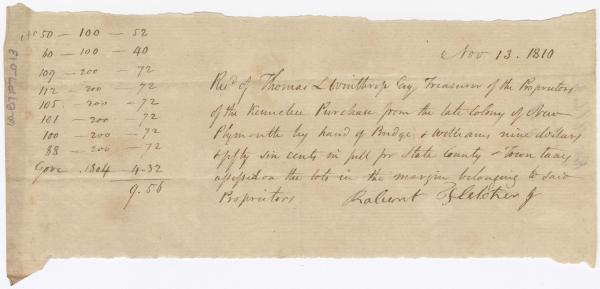 No 50 — 100 — 52
60 — 100 — 40
109 — 200 — 72
112 — 200 — 72
105 — 200 — 72
101 — 200 — 72
100 — 200 — 72
88 — 200 — 72
Gore . 1804 4.32
9.56
Nov 13. 1810
Recd of Thomas L Winthrop Esq Treasurer of the Proprietors
of the Kennebec Purchase from the late Colony of New
Plymouth by hand of Bridge & Williams nine dollars
& fifty six cents in full for State County & Town taxes
assessed on the lots in the margin belonging to said
Proprietors Fletcher Jr